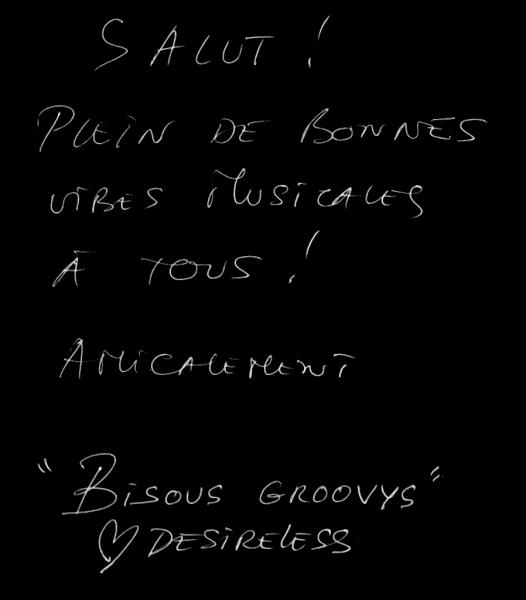 SALUT !
PLEIN DE BONNES
VIBES MUSICALES
À TOUS !
AMICALEMENT
"BISOUS GROOVYS"
♡ DESIRELESS